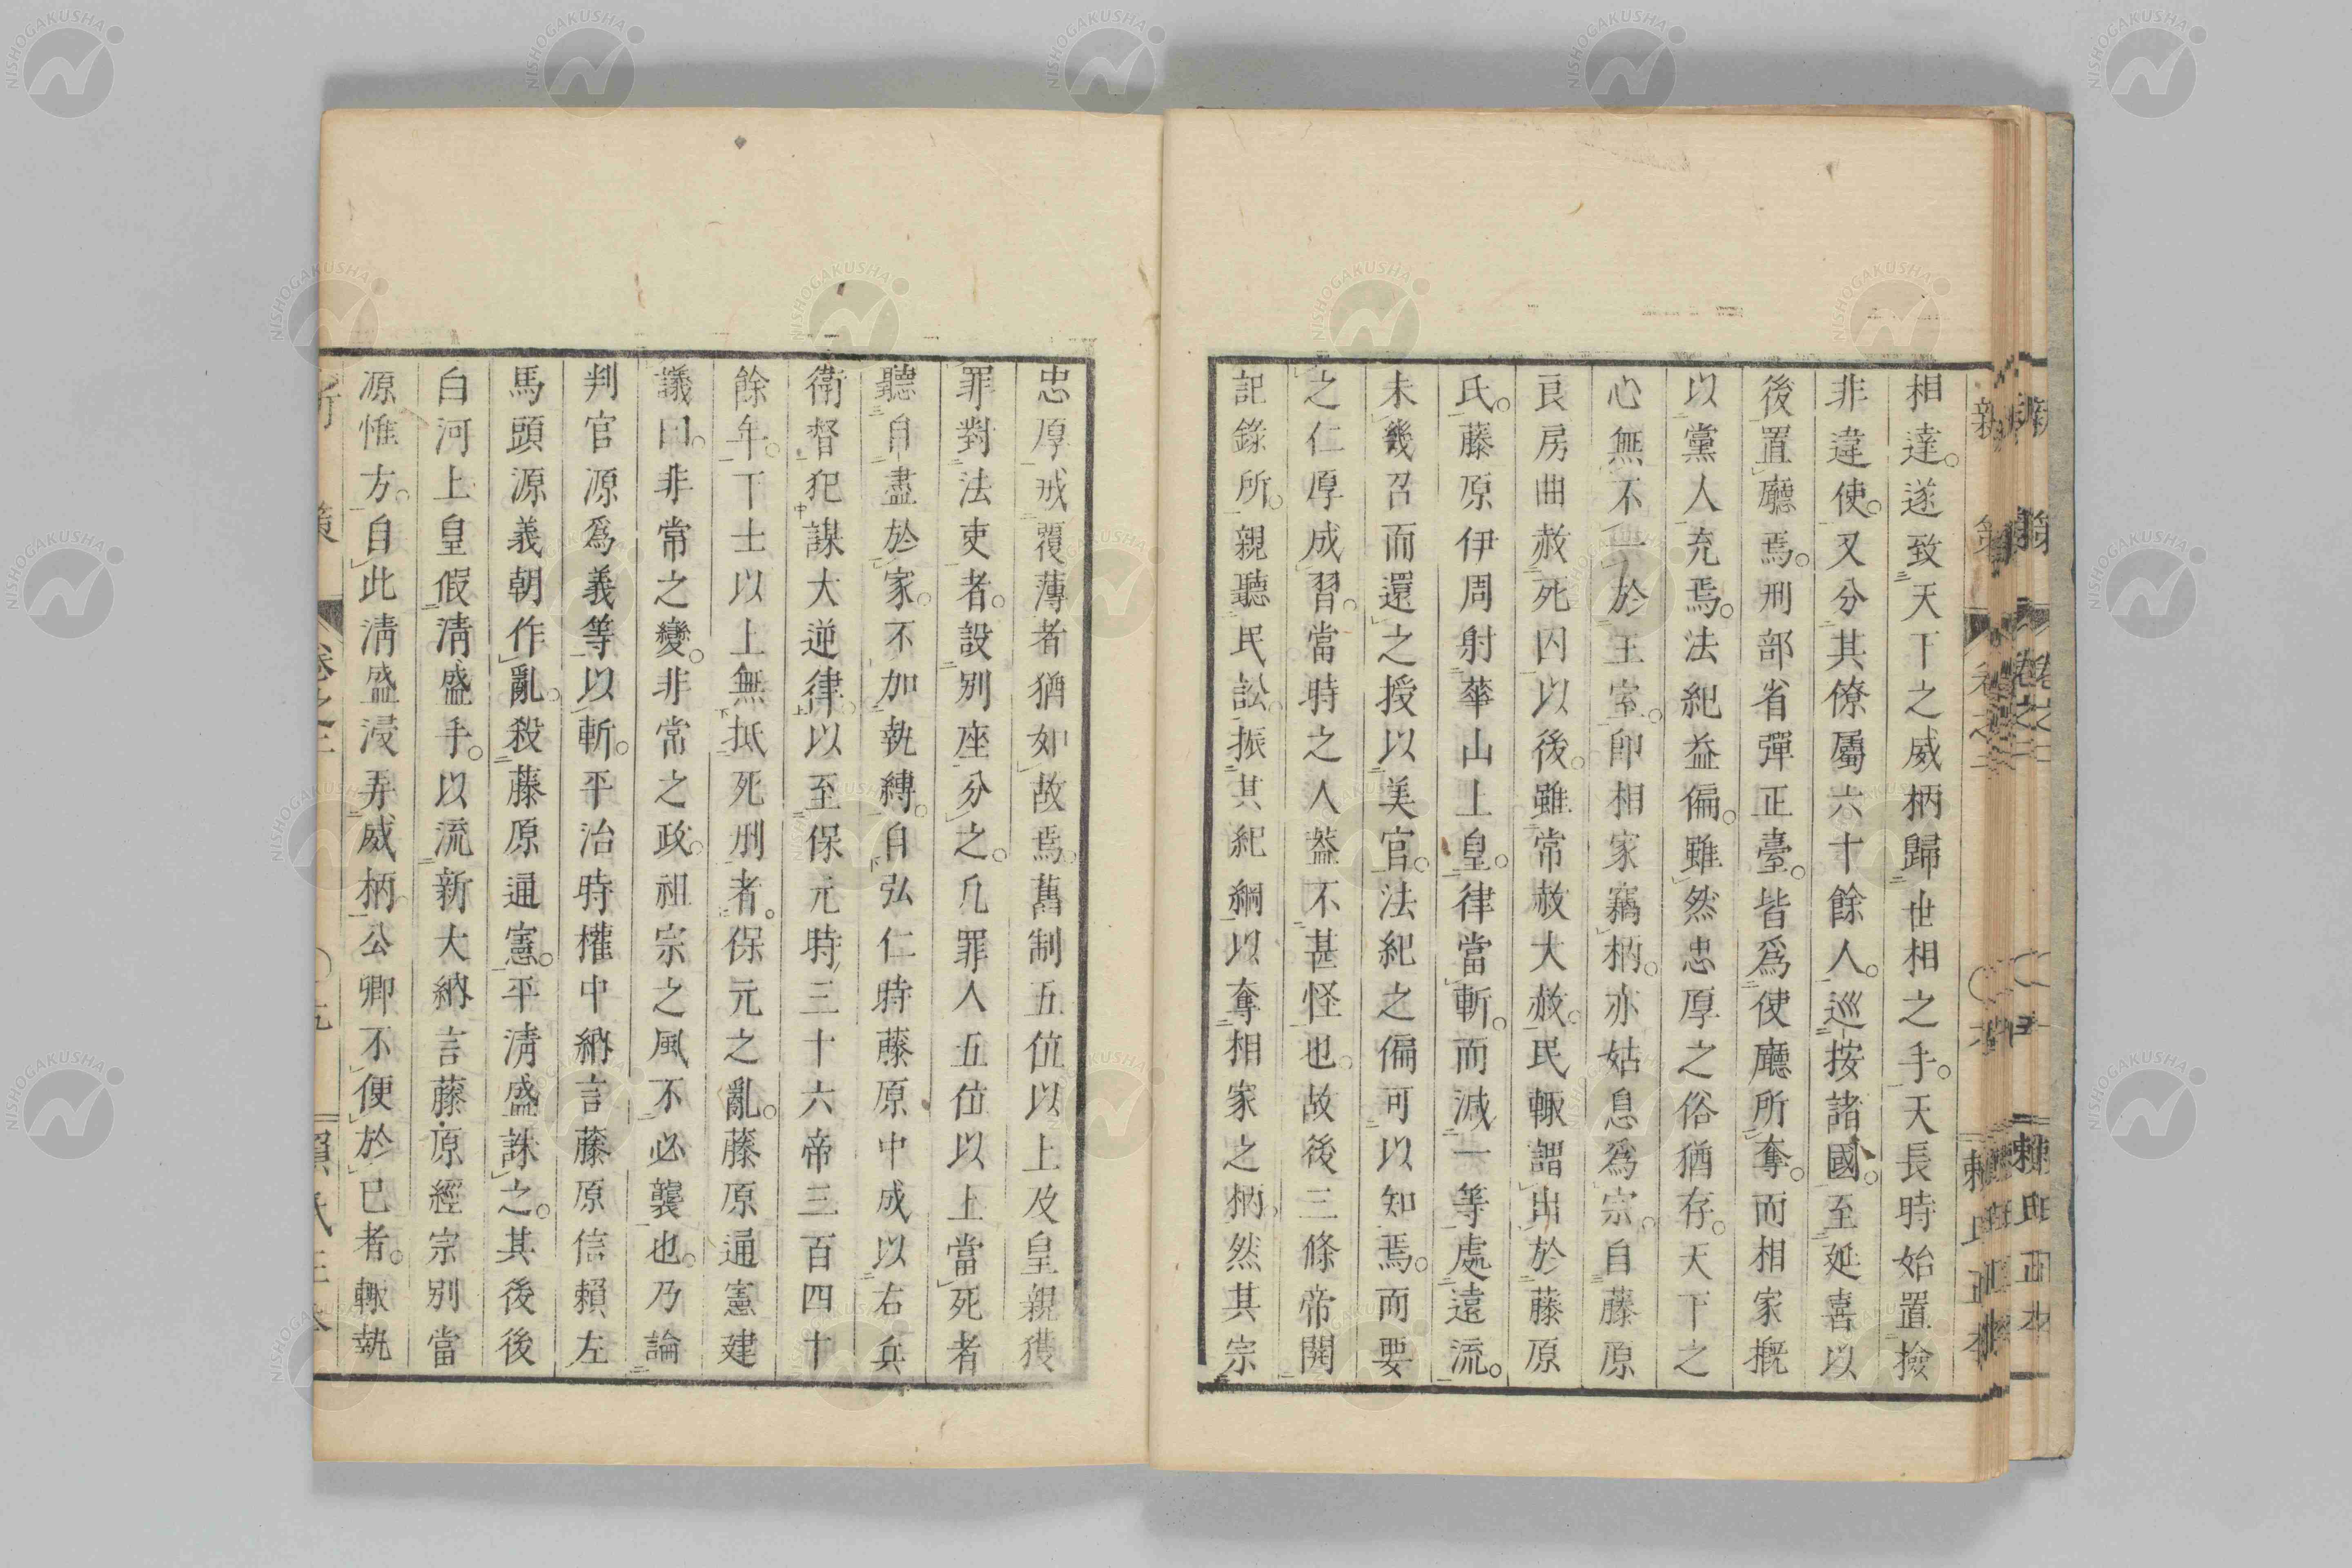 相達。遂致天下之威柄歸世相之手。天長時始置撿
非違使。又分其僚屬六十餘人。巡按諸國。至延喜以
後置廳焉。刑部省彈正臺。皆爲使廳所奪。而相家概
以黨人充焉。法紀益偏。雖然忠厚之俗猶存。天下之
心無不一於王室。卽相家竊柄。亦姑息爲宗。自藤原
良房曲赦死囚以後。雖常赦大赦。民輙謂出於藤原
氏。藤原伊周射華山上皇。律當斬。而減一等處遠流。
未幾召而還之授以美官。法紀之偏可以知焉。而要
之仁厚成習。當時之人葢不甚怪也。故後三條帝開
記錄所。親聽民訟。振其紀綱以奪相家之柄。然其宗
忠厚戒覆薄者猶如故焉。舊制五位以上及皇親獲
罪對法吏者。設別座分之。凡罪人五位以上當死者
聽自盡於家。不加執縛。自弘仁時藤原中成以右兵
衛督犯謀大逆律。以至保元時三十六帝三百四十
餘年。下士以上無抵死刑者。保元之亂。藤原通憲建
議曰。非常之變。非常之政。祖宗之風不必襲也。乃論
判官源爲義等以斬。平治時權中納言藤原信賴左
馬頭源義朝作亂。殺藤原通憲。平淸盛誅之。其後後
白河上皇假淸盛手。以流新大納言藤原經宗別當
源惟方。自此淸盛浸弄威柄。公卿不便於已者。輙執
NISHOGAKUSHA